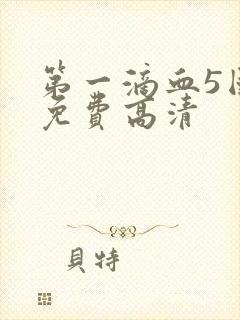 第一滴血5国
免费高清
貝特